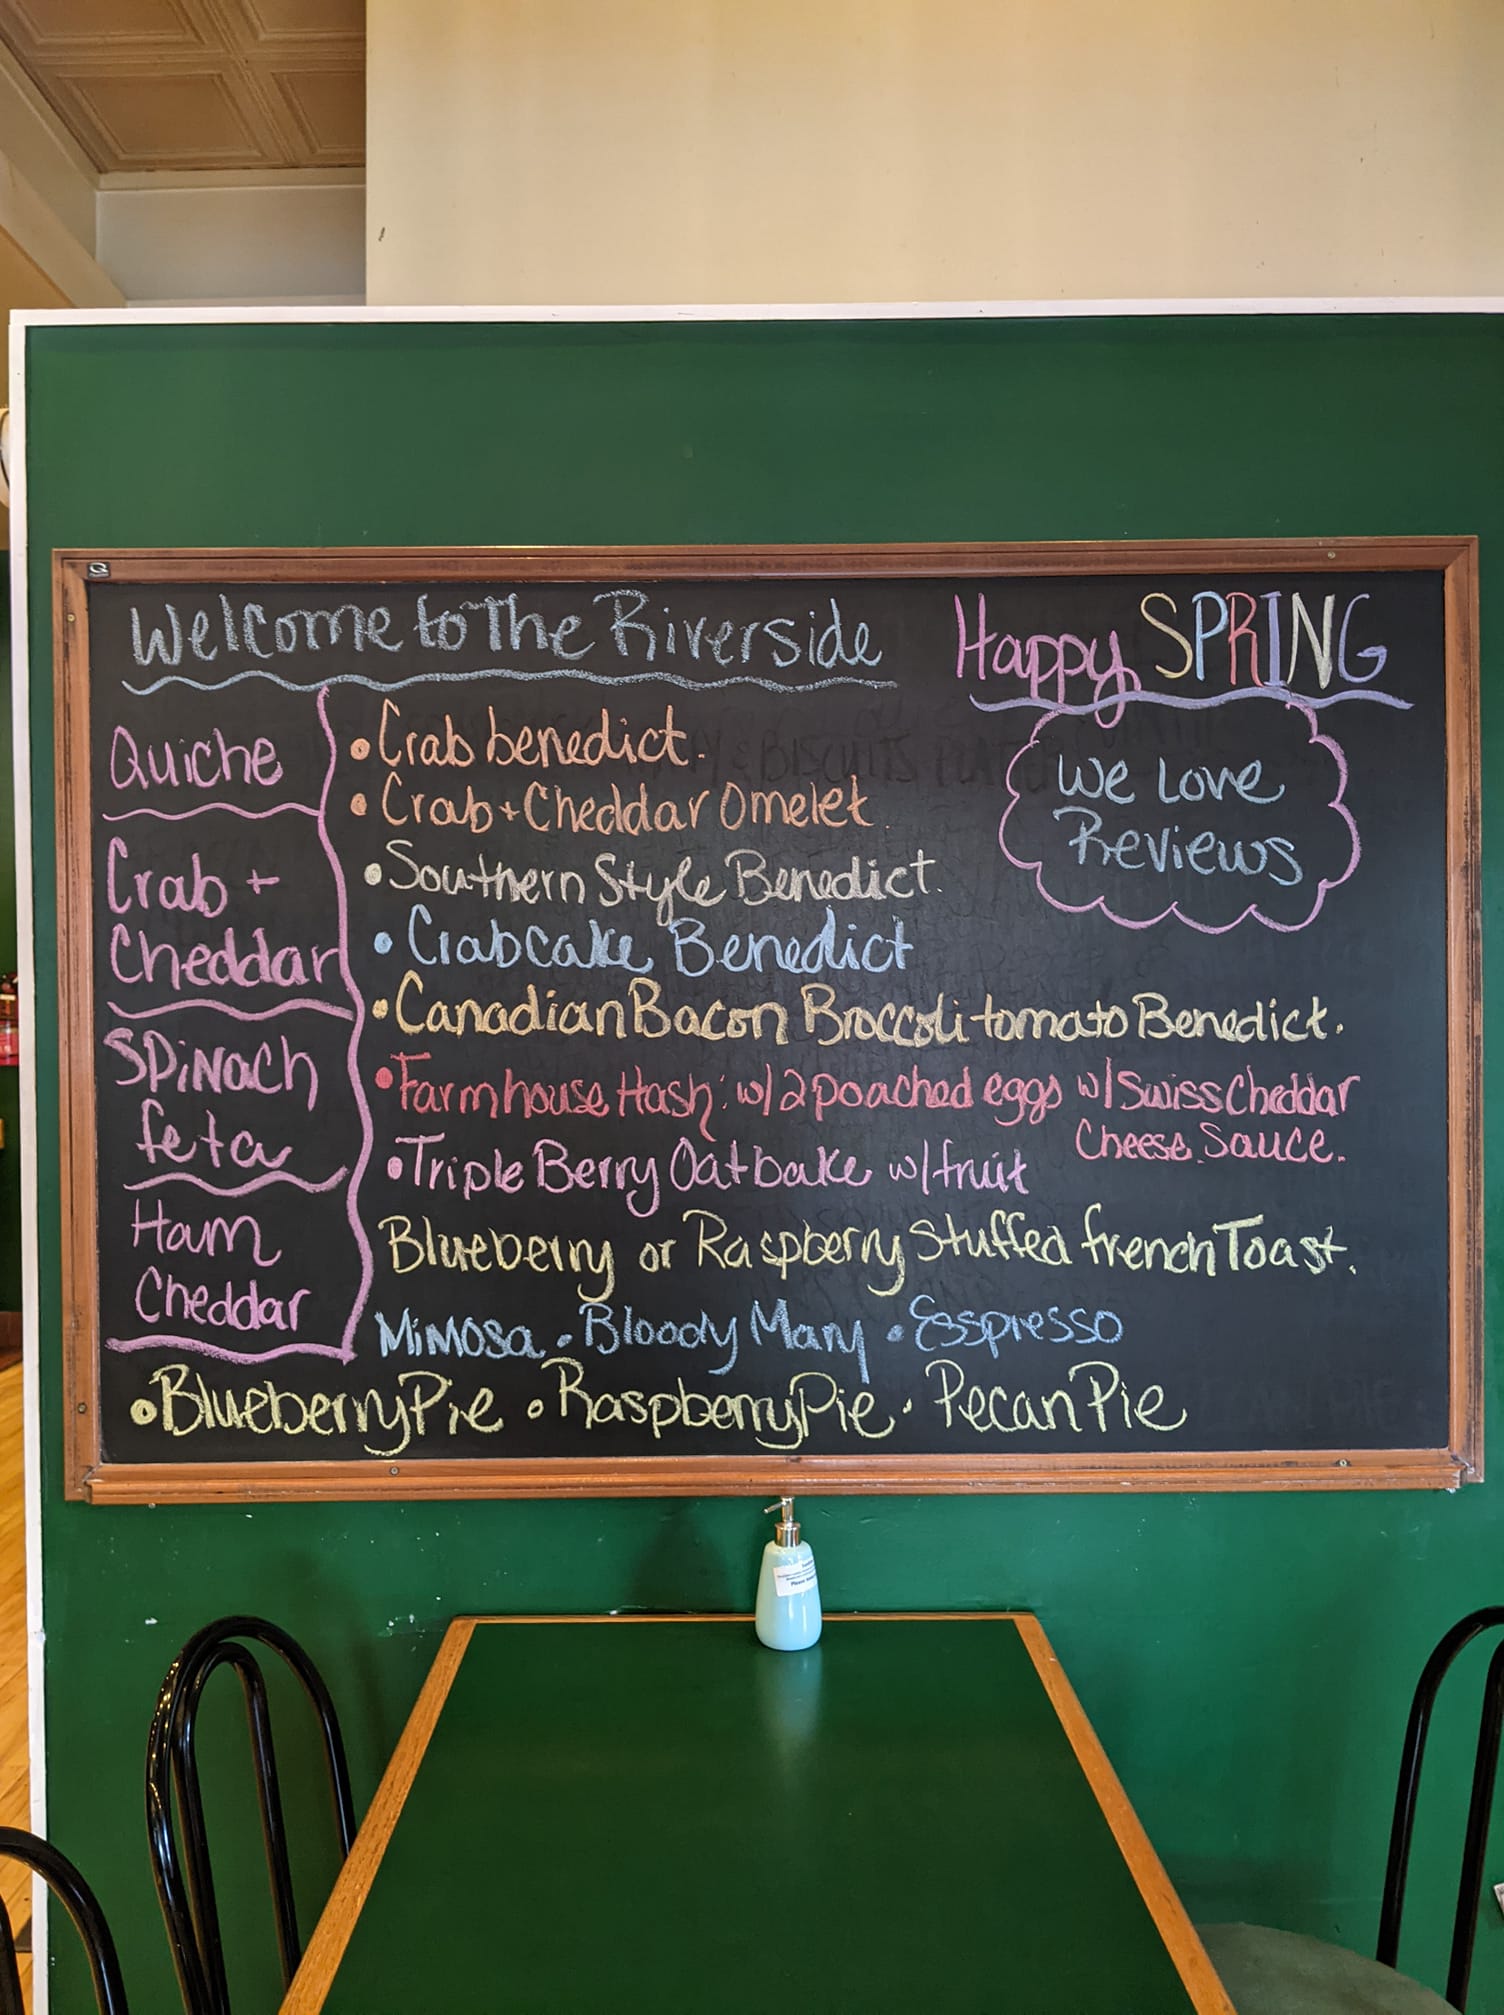 Welcome to The Riverside
Happy SPRING
We Love
Reviews
Quiche
Crab +
Cheddar
Spinach
feta
Ham
Cheddar
• Crab benedict.
• Crab + Cheddar Omelet
• Southern Style Benedict.
• Crabcake Benedict
• Canadian Bacon Broccoli tomato Benedict.
• Farmhouse Hash: w/2 poached eggs w/Swiss Cheddar
Cheese Sauce.
• Triple Berry Oatbake w/fruit
Blueberry or Raspberry Stuffed french Toast.
Mimosa • Bloody Mary • Espresso
• Blueberry Pie • Raspberry Pie • Pecan Pie
Please